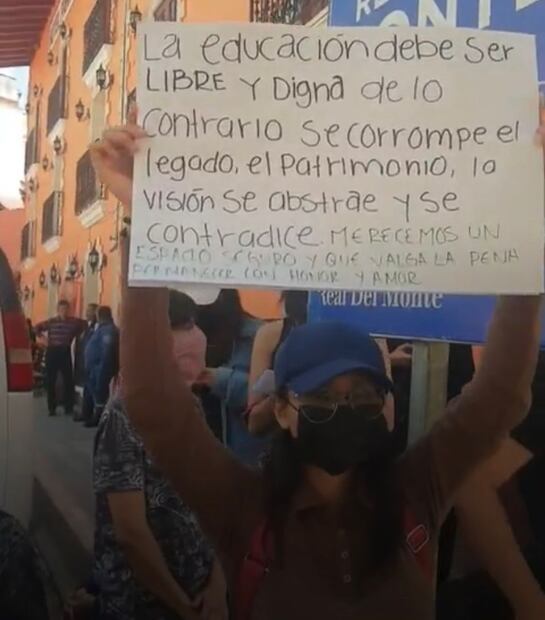 La educación debe ser
LIBRE Y Digna de lo
contrario se corrompe el
legado, el Patrimonio, la
visión se abstrae y se
contradice. MERECEMOS UN
ESPACIO SEGURO Y QUE VALGA LA PENA
PERMANECER CON HONOR Y AMOR
Real Del Monte